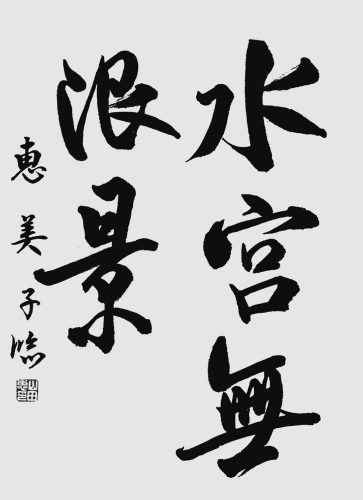 水宮無
限景
惠美子臨